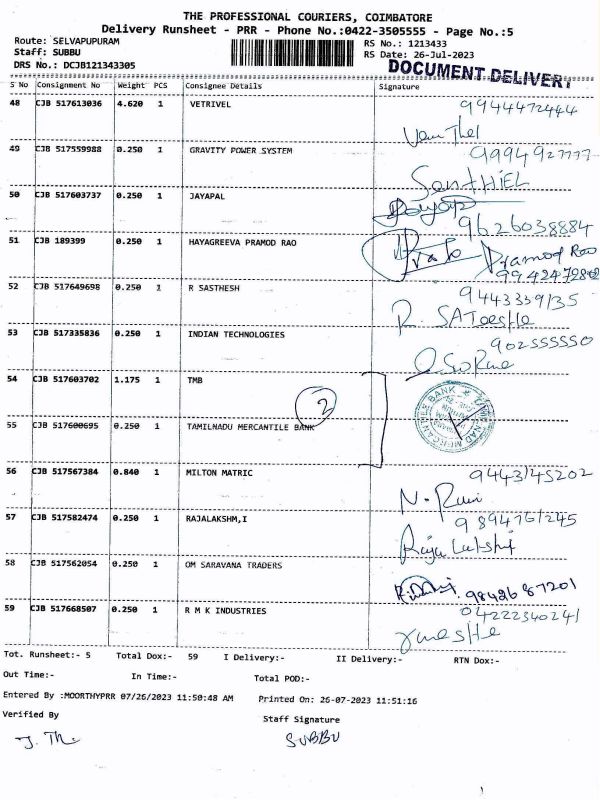 THE PROFESSIONAL COURIERS, COIMBATORE
Delivery Runsheet - PRR - Phone No.:0422-3505555 - Page No.:5
Route: SELVAPUPURAM
RS No.: 1213433
Staff: SUBBU
RS Date: 26-Jul-2023
DRS No.: DCJB121343305
DOCUMENT DELIVERY
S No Consignment No Weight PCS Consignee Details Signature
48 CJB 517613036 4.620 1 VETRIVEL
9944472444
49 CJB 517559988 0.250 1 GRAVITY POWER SYSTEM
9994927777
SenTHIEL
50 CJB 517603737 0.250 1 JAYAPAL
9626038884
51 CJB 189399 0.250 1 HAYAGREEVA PRAMOD RAO
Pramod Rao
52 CJB 517649698 0.250 1 R SASTHESH
9443339135
53 CJB 517335836 0.250 1 INDIAN TECHNOLOGIES
902555550
54 CJB 517603702 1.175 1 TMB
2
55 CJB 517600695 0.250 1 TAMILNADU MERCANTILE BANK
56 CJB 517567384 0.840 1 MILTON MATRIC
9443145202
57 CJB 517582474 0.250 1 RAJALAKSHM,I
9894761245
58 CJB 517562054 0.250 1 OM SARAVANA TRADERS
9842687201
59 CJB 517668507 0.250 1 R M K INDUSTRIES
04222340241
Tot. Runsheet:- 5 Total Dox:- 59 I Delivery:- II Delivery:- RTN Dox:-
Out Time:- In Time:- Total POD:-
Entered By :MOORTHYPRR 07/26/2023 11:50:48 AM Printed On: 26-07-2023 11:51:16
Verified By Staff Signature
SUBBU